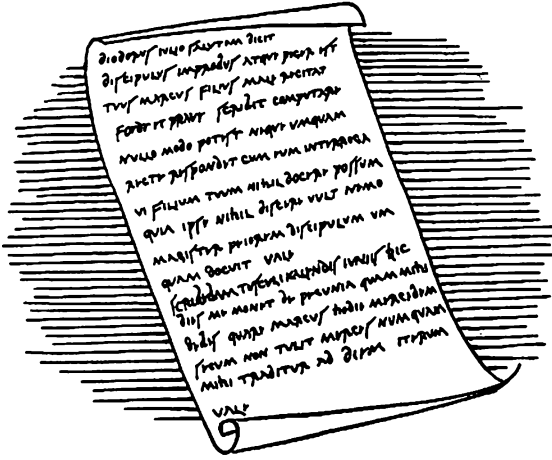 DIODORUS IULIO SALUTEM DICIT
DISCIPULUS IMPROBUS ATQUE PIGER EST
TUUS MARCUS FILIUS MALE RECITAT
FOEDE ET PRAVE SCRIBIT COMPUTARE
NULLO MODO POTEST NEQUE UMQUAM
RECTE RESPONDIT CUM EUM INTERROGA
VI FILIUM TUUM NIHIL DOCERE POSSUM
QUIA IPSE NIHIL DISCERE VULT NEMO
MAGISTER PEIOREM DISCIPULUM UM
QUAM DOCUIT VALE
SCRIBEBAM TUSCULI KALENDIS IUNIIS HIC
DIES ME MONET DE PECUNIA QUAM MIHI
DEBES QUARE MARCUS HODIE MERCEDEM
SECUM NON TULIT MERCES NUMQUAM
MIHI TRADITUR AD DIEM ITERUM
VALE